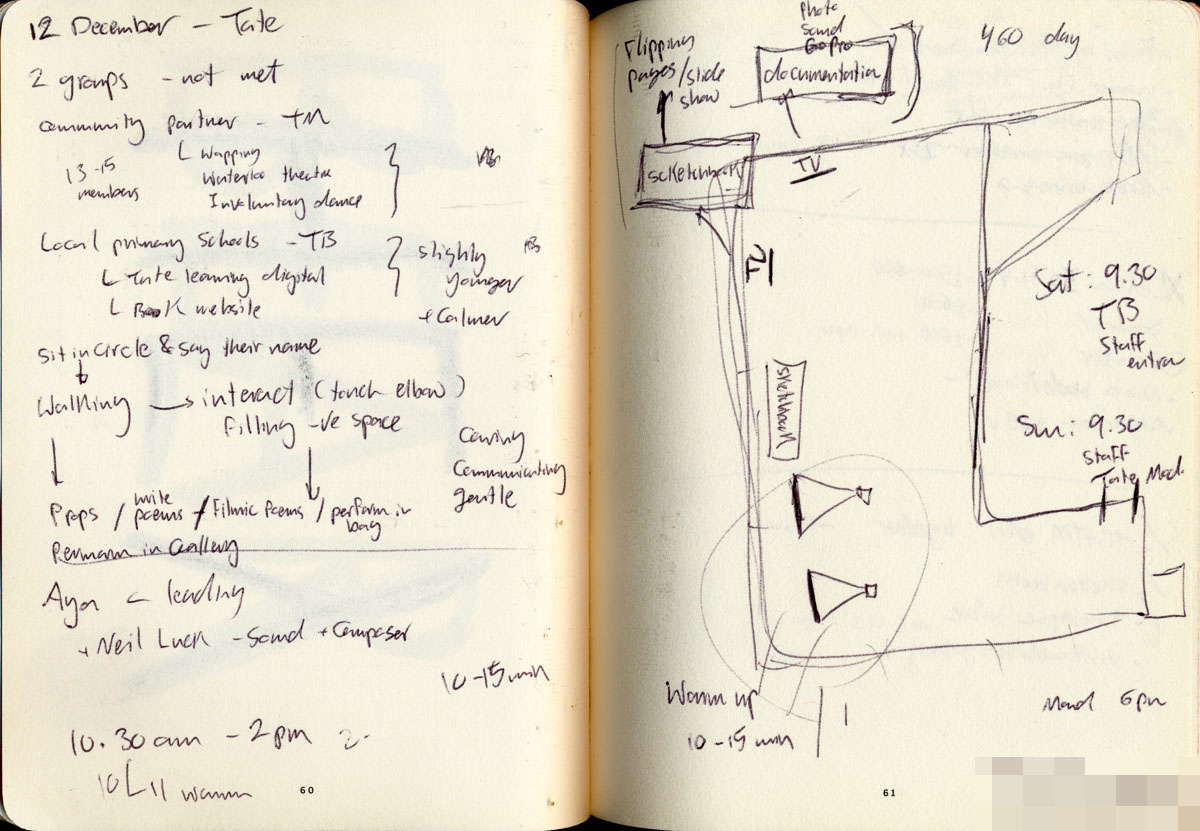 12 December - Tate
2 groups - not met
community partner - TM
13-15
members
Wapping
Waterloo theatre
Involuntary dance
Local primary schools - TB
Tate learning digital
Book website
slightly
younger
+ Calmer
sit in circle & say their name
Walking → interact (touch elbow)
filling -ve space
Caring
Communicating
gentle
Props / write poems / Filmic Poems / perform in bay
in Gallery
leading
+ Neil Luck - Sound + Composer
10-15 min
10.30 am - 2 pm 2-
10 11 warm
60
Flipping
pages/slide
show
Photo
Sound
GoPro
documentation
460 day
sketchbook
TV
TV
sketchbook
Sat: 9.30
TB
Staff
entra
Sun: 9.30
Staff
Tate Mod.
Warm up
10-15 min
1
6 pm
61